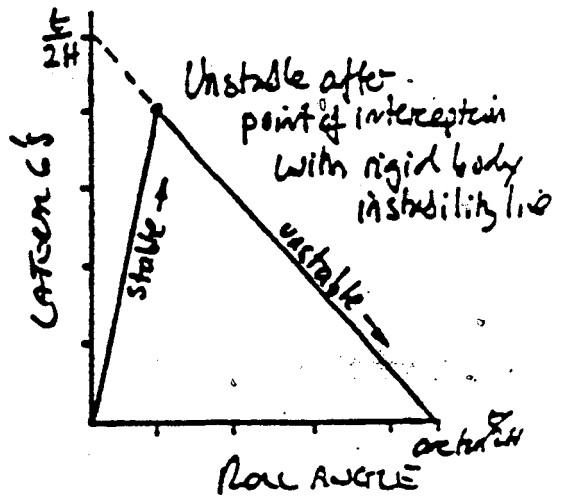 t/2H
Unstable after
point of interception
with rigid body
instability line
LATERAL G's
stable →
unstable →
arctan t/2H
ROLL ANGLE